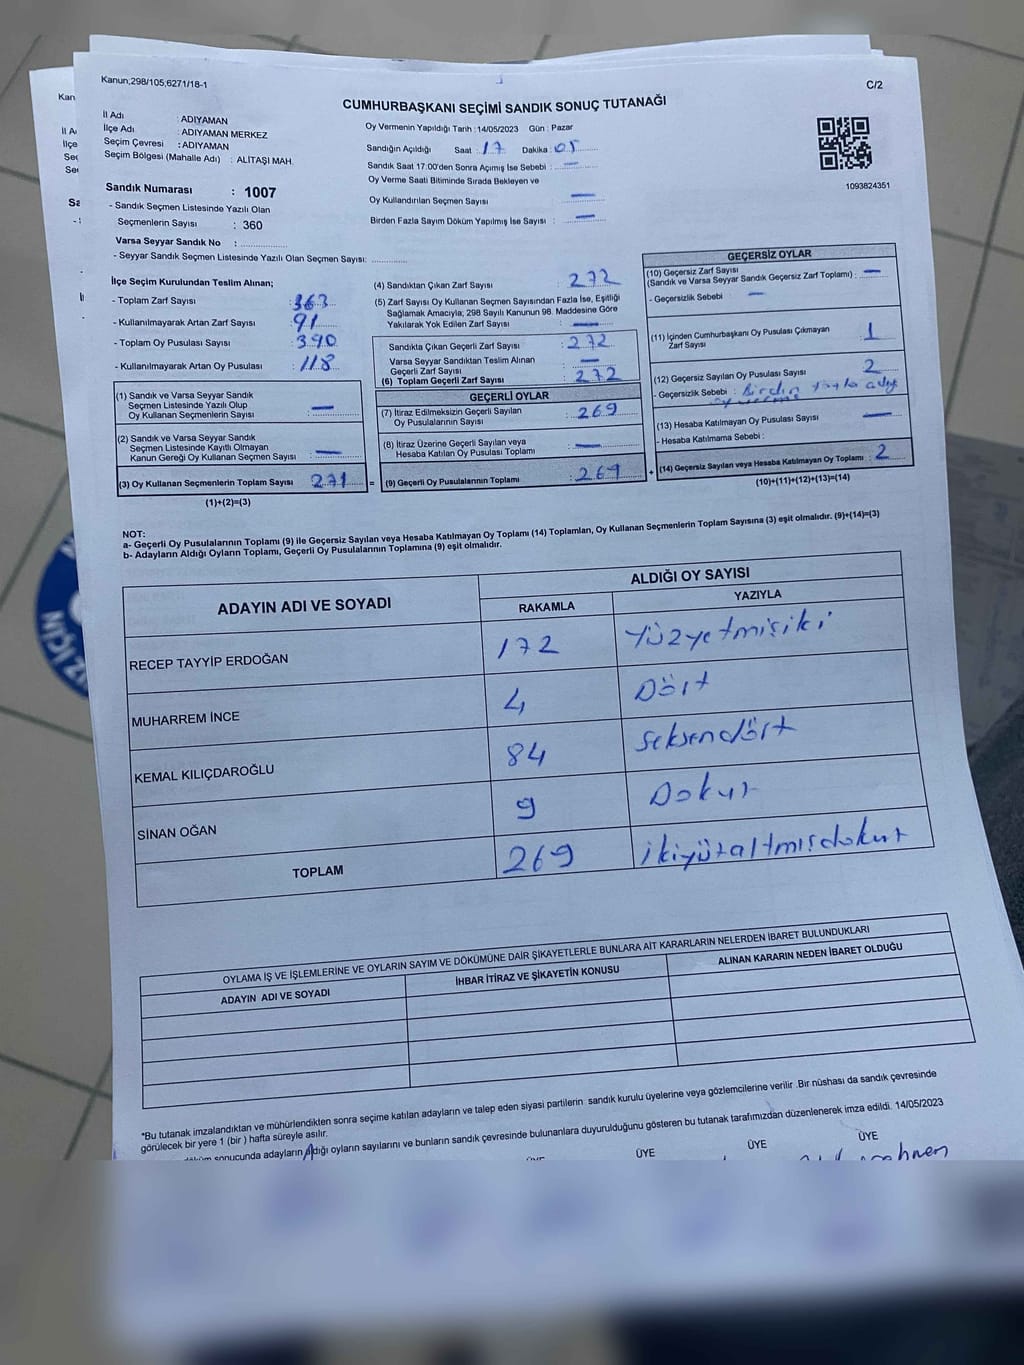 Kanun,298/105,6271/18-1
C/2
CUMHURBAŞKANI SEÇİMİ SANDIK SONUÇ TUTANAĞI
İl Adı : ADIYAMAN
İlçe Adı : ADIYAMAN MERKEZ
Seçim Çevresi : ADIYAMAN
Seçim Bölgesi (Mahalle Adı) : ALİTAŞI MAH.
Sandık Numarası : 1007
- Sandık Seçmen Listesinde Yazılı Olan
Seçmenlerin Sayısı : 360
Varsa Seyyar Sandık No :
- Seyyar Sandık Seçmen Listesinde Yazılı Olan Seçmen Sayısı:
Oy Vermenin Yapıldığı Tarih :14/05/2023 Gün : Pazar
Sandığın Açıldığı Saat : 17 Dakika : 05
Sandık Saat 17.00'den Sonra Açımış İse Sebebi : —
Oy Verme Saati Bitiminde Sırada Bekleyen ve
Oy Kullandırılan Seçmen Sayısı —
Birden Fazla Sayım Döküm Yapılmış İse Sayısı : —
1093824351
İlçe Seçim Kurulundan Teslim Alınan;
- Toplam Zarf Sayısı : 363
- Kullanılmayarak Artan Zarf Sayısı : 91
- Toplam Oy Pusulası Sayısı : 390
- Kullanılmayarak Artan Oy Pusulası : 118
(1) Sandık ve Varsa Seyyar Sandık
Seçmen Listesinde Yazılı Olup
Oy Kullanan Seçmenlerin Sayısı : —
(2) Sandık ve Varsa Seyyar Sandık
Seçmen Listesinde Kayıtlı Olmayan
Kanun Gereği Oy Kullanan Seçmen Sayısı : —
(3) Oy Kullanan Seçmenlerin Toplam Sayısı : 271 =
(1)+(2)=(3)
(4) Sandıktan Çıkan Zarf Sayısı : 272
(5) Zarf Sayısı Oy Kullanan Seçmen Sayısından Fazla İse, Eşitliği
Sağlamak Amacıyla; 298 Sayılı Kanunun 98. Maddesine Göre
Yakılarak Yok Edilen Zarf Sayısı : —
Sandıkta Çıkan Geçerli Zarf Sayısı : 272
Varsa Seyyar Sandıktan Teslim Alınan
Geçerli Zarf Sayısı : —
(6) Toplam Geçerli Zarf Sayısı : 272
GEÇERLİ OYLAR
(7) İtiraz Edilmeksizin Geçerli Sayılan
Oy Pusulalarının Sayısı : 269
(8) İtiraz Üzerine Geçerli Sayılan veya
Hesaba Katılan Oy Pusulası Toplamı : —
(9) Geçerli Oy Pusulalarının Toplamı : 269 +
GEÇERSİZ OYLAR
(10) Geçersiz Zarf Sayısı
(Sandık ve Varsa Seyyar Sandık Geçersiz Zarf Toplamı) : —
- Geçersizlik Sebebi : —
(11) İçinden Cumhurbaşkanı Oy Pusulası Çıkmayan
Zarf Sayısı : 1
(12) Geçersiz Sayılan Oy Pusulası Sayısı : 2
- Geçersizlik Sebebi :
(13) Hesaba Katılmayan Oy Pusulası Sayısı : —
- Hesaba Katılmama Sebebi :
(14) Geçersiz Sayılan veya Hesaba Katılmayan Oy Toplamı : 2
(10)+(11)+(12)+(13)=(14)
NOT:
a- Geçerli Oy Pusulalarının Toplamı (9) ile Geçersiz Sayılan veya Hesaba Katılmayan Oy Toplamı (14) Toplamları, Oy Kullanan Seçmenlerin Toplam Sayısına (3) eşit olmalıdır. (9)+(14)=(3)
b- Adayların Aldığı Oyların Toplamı, Geçerli Oy Pusulalarının Toplamına (9) eşit olmalıdır.
ADAYIN ADI VE SOYADI
ALDIĞI OY SAYISI
RAKAMLA YAZIYLA
RECEP TAYYİP ERDOĞAN 172 Yüzyetmişiki
MUHARREM İNCE 4 Dört
KEMAL KILIÇDAROĞLU 84 Seksendört
SİNAN OĞAN 9 Dokuz
TOPLAM 269 ikiyüzaltmışdokuz
OYLAMA İŞ VE İŞLEMLERİNE VE OYLARIN SAYIM VE DÖKÜMÜNE DAİR ŞİKAYETLERLE BUNLARA AİT KARARLARIN NELERDEN İBARET BULUNDUKLARI
ADAYIN ADI VE SOYADI İHBAR İTİRAZ VE ŞİKAYETİN KONUSU ALINAN KARARIN NEDEN İBARET OLDUĞU
*Bu tutanak imzalandıktan ve mühürlendikten sonra seçime katılan adayların ve talep eden siyasi partilerin sandık kurulu üyelerine veya gözlemcilerine verilir .Bir nüshası da sandık çevresinde
görülecek bir yere 1 (bir ) hafta süreyle asılır.
sonucunda adayların aldığı oyların sayılarını ve bunların sandık çevresinde bulunanlara duyurulduğunu gösteren bu tutanak tarafımızdan düzenlenerek imza edildi. 14/05/2023
ÜYE ÜYE ÜYE